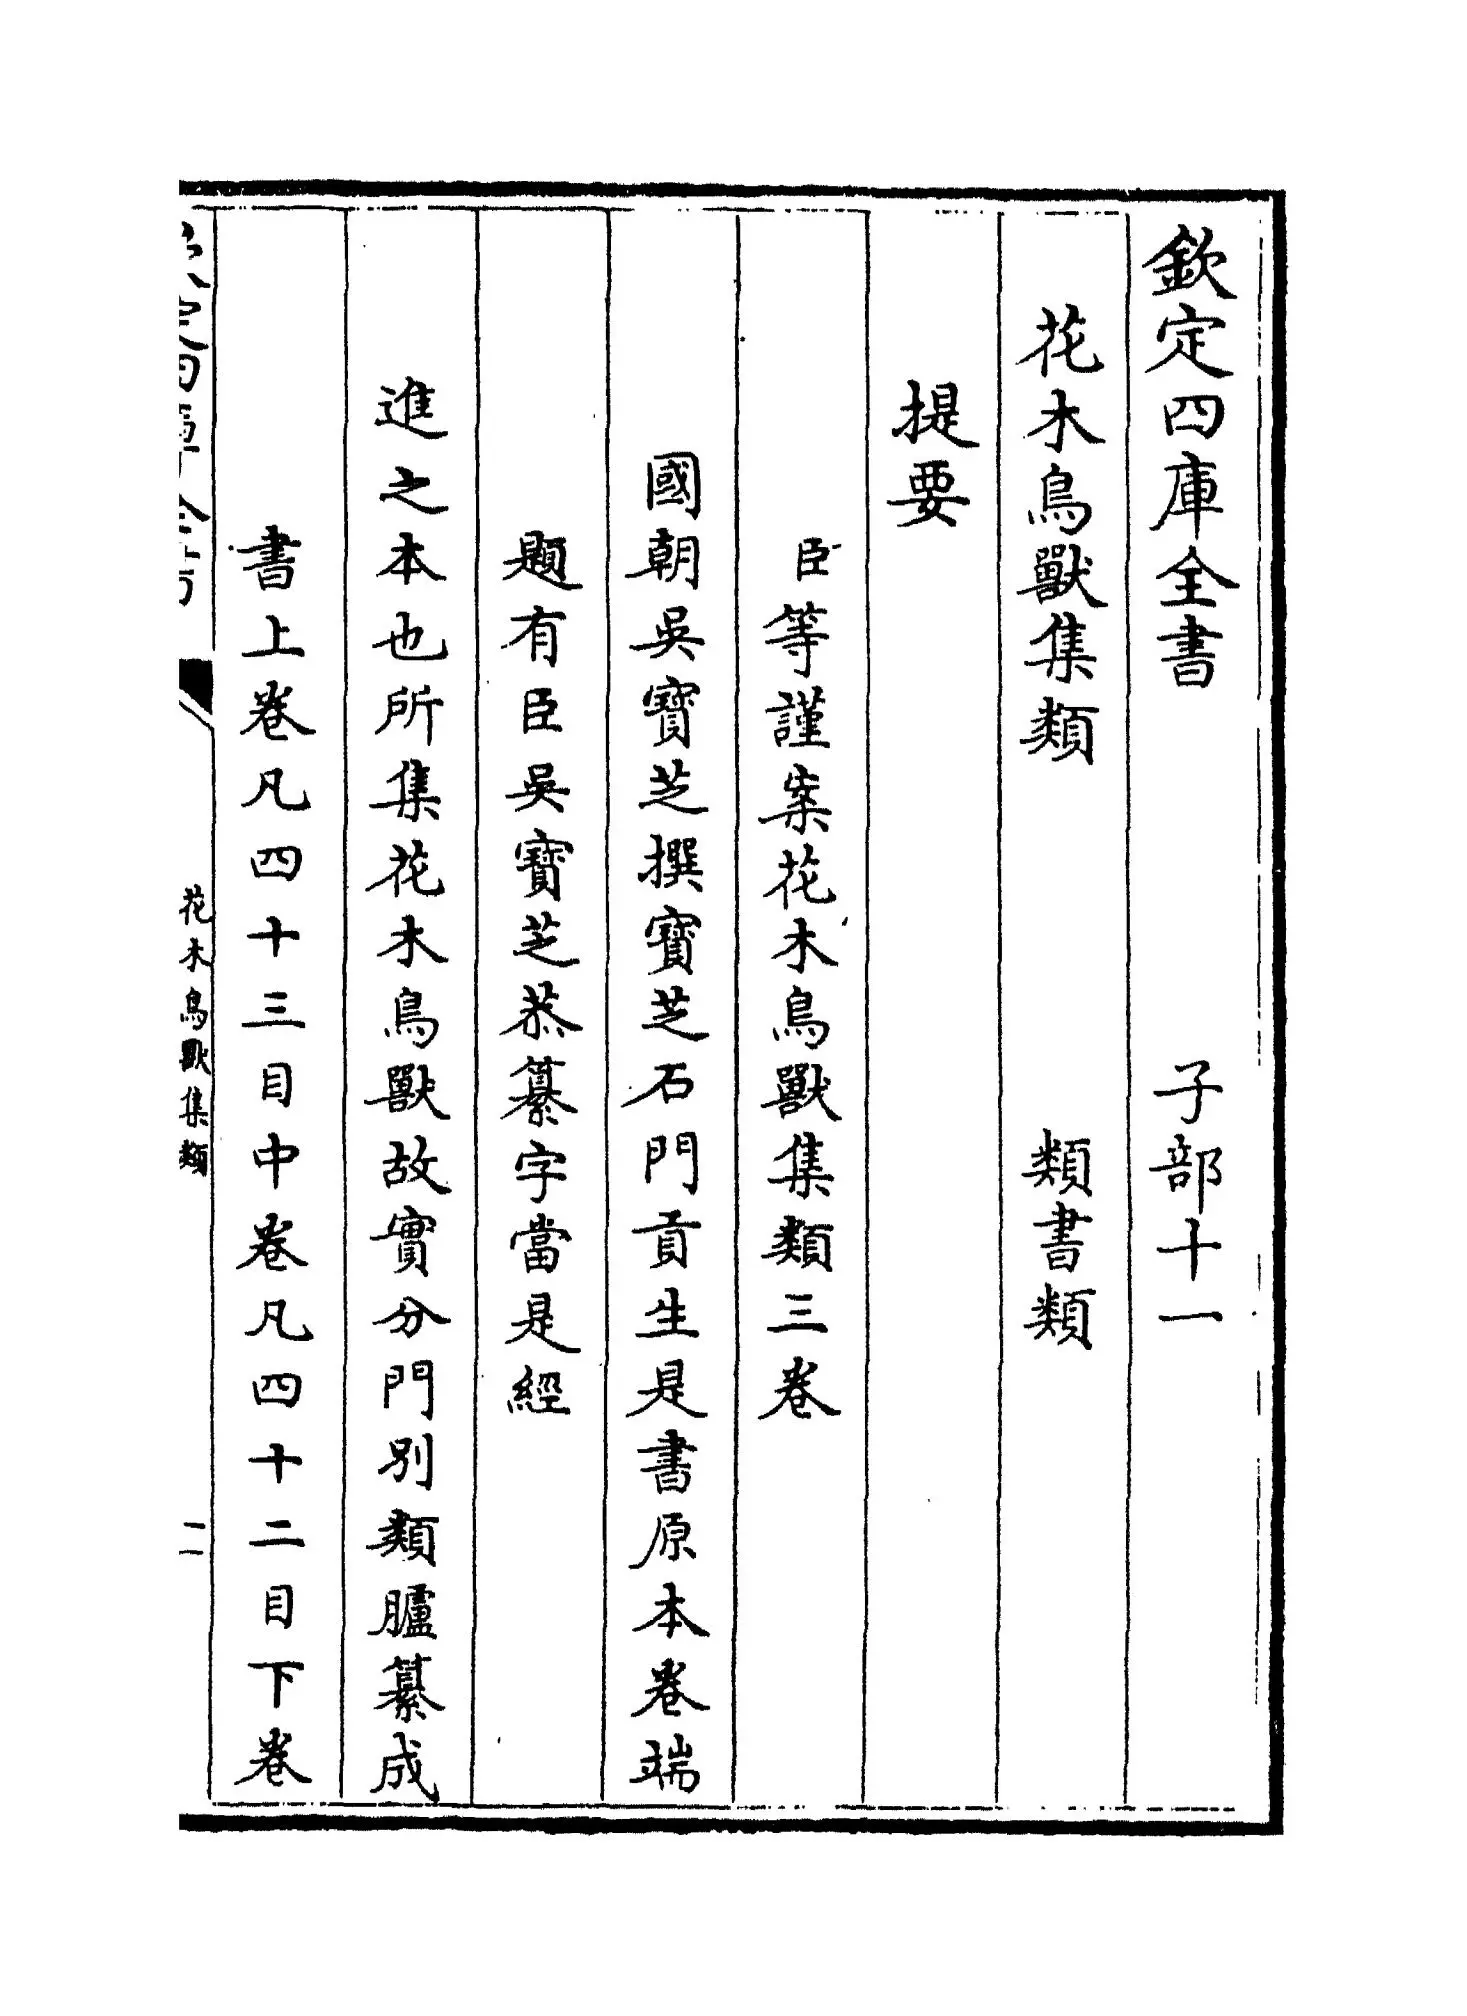 欽定四庫全書 子部十一
花木鳥獸集類 類書類
提要
臣等謹案花木鳥獸集類三卷
國朝吳寶芝撰寶芝石門貢生是書原本卷端
題有臣吳寶芝恭纂字當是經
進之本也所集花木鳥獸故實分門別類臚纂成
書上卷凡四十三目中卷凡四十二目下卷
花木鳥獸集類 二